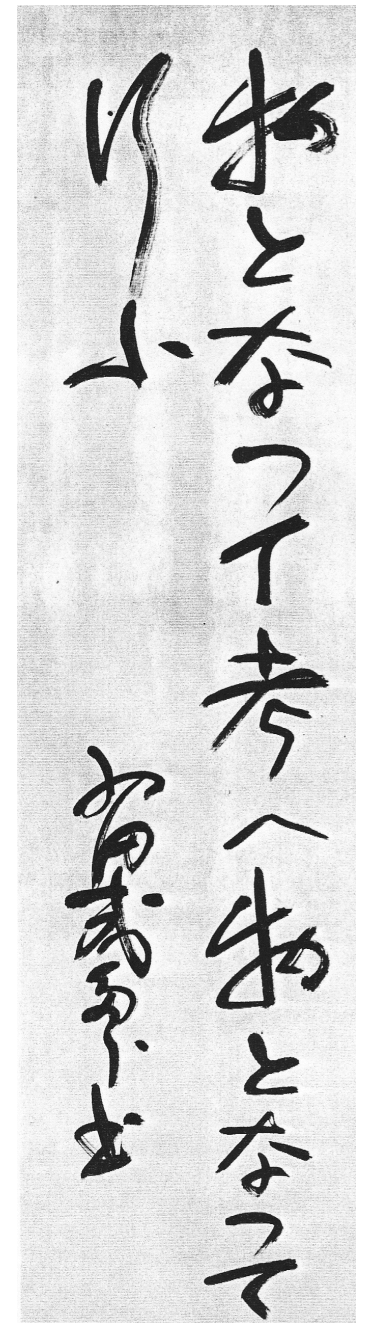 物となつて考へ物となつて
行ふ
西田幾多郎書